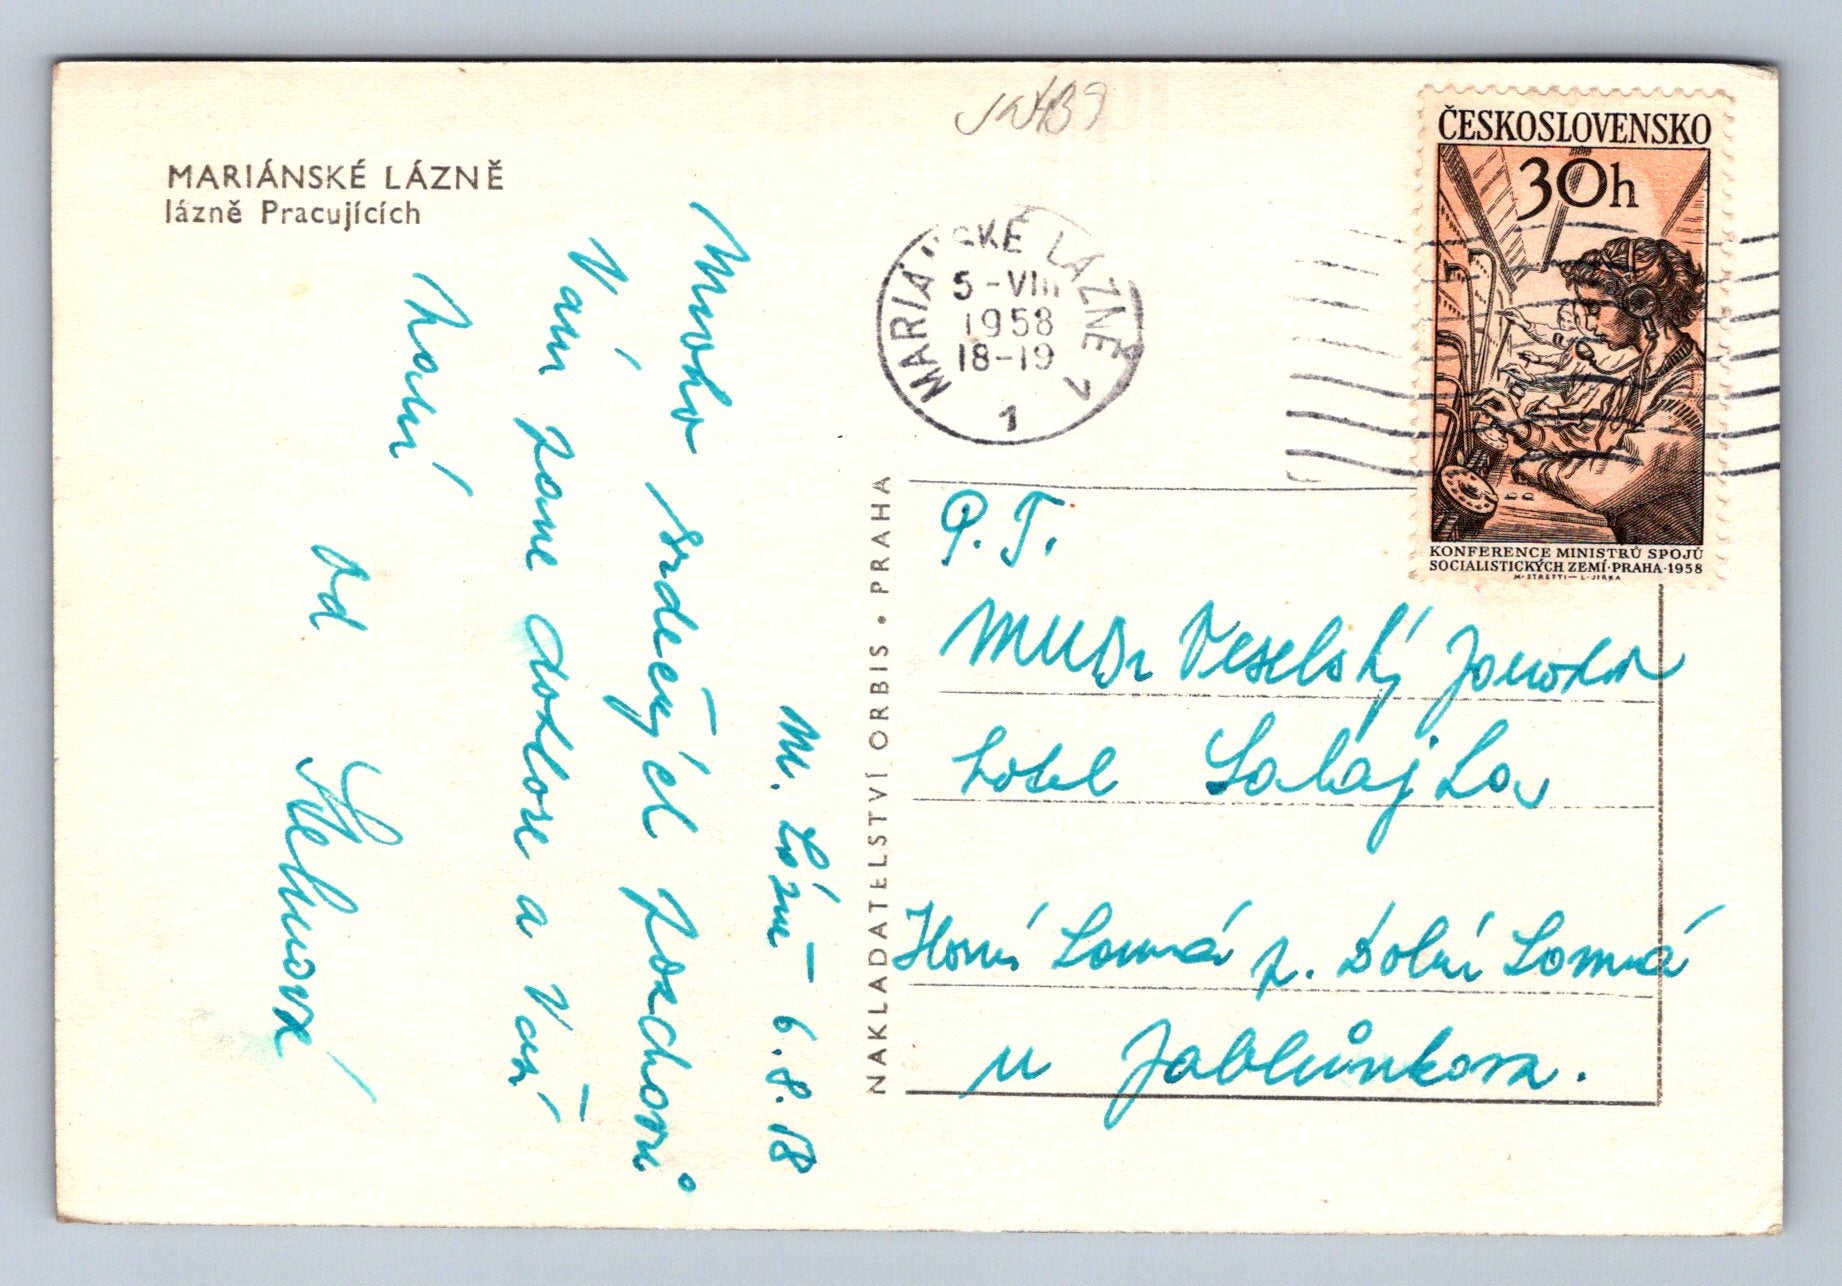 MARIÁNSKÉ LÁZNĚ
lázně Pracujících
M. Lázně 6.8.58
Mnoho srdečných pozdravů
Vám pane doktore a Vaší
paní
od
MARIÁNSKÉ LÁZNĚ 1
5-VIII
1958
18-19
1
ČESKOSLOVENSKO
30h
KONFERENCE MINISTRŮ SPOJŮ
SOCIALISTICKÝCH ZEMÍ·PRAHA·1958
M·STRETTI — L·JIRKA
NAKLADATELSTVÍ ORBIS • PRAHA
P. T.
MUDr Veselský
hotel Salajka
Horní Lomná p. Dolní Lomná
u Jablůnkova.